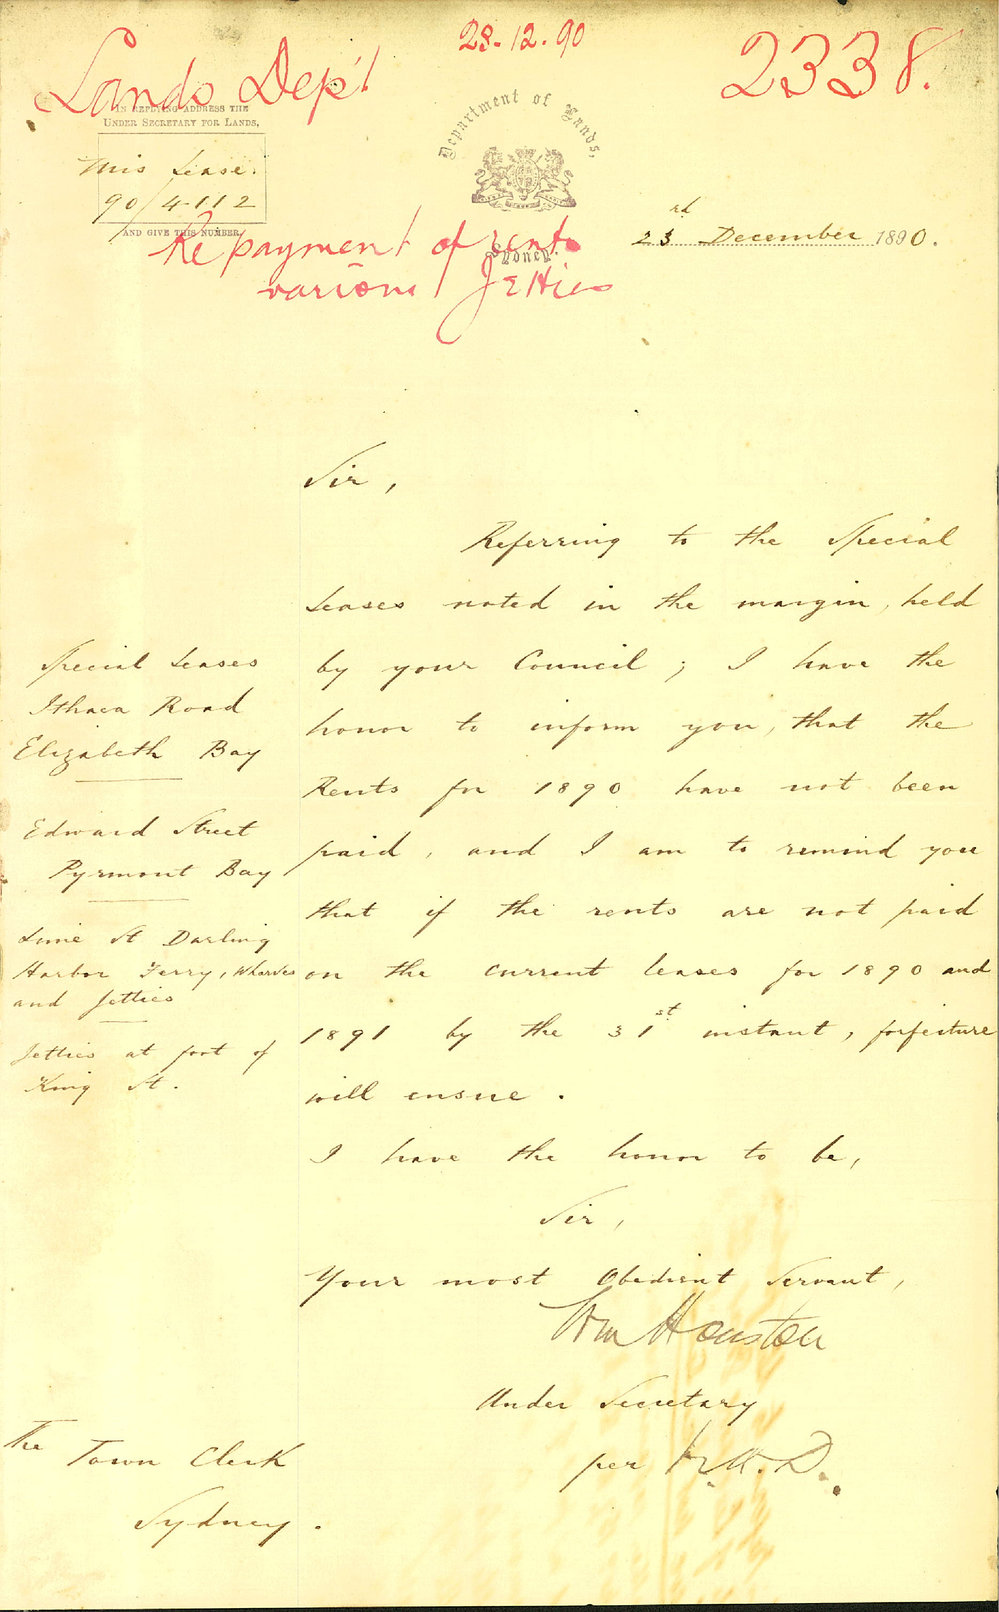 28.12.90
Lands Dep't
2338.
IN REPLYING ADDRESS THE
UNDER SECRETARY FOR LANDS,
Mis Lease.
90/4112
AND GIVE THIS NUMBER.
Department of Lands,
Sydney.
23rd December 1890.
Re payment of rents
various Jetties
Sir,
Referring to the Special
Leases noted in the margin, held
by your Council; I have the
honor to inform you, that the
Rents for 1890 have not been
paid, and I am to remind you
that if the rents are not paid
on the current leases for 1890 and
1891 by the 31st instant, forfeiture
will ensue.
I have the honor to be,
Sir,
Your most Obedient Servant,
Wm Houston
Under Secretary
per
Special Leases
Ithaca Road
Elizabeth Bay
Edward Street
Pyrmont Bay
Lime St Darling
Harbor Ferry, Wharves
and Jetties
Jetties at foot of
King St.
The Town Clerk
Sydney.